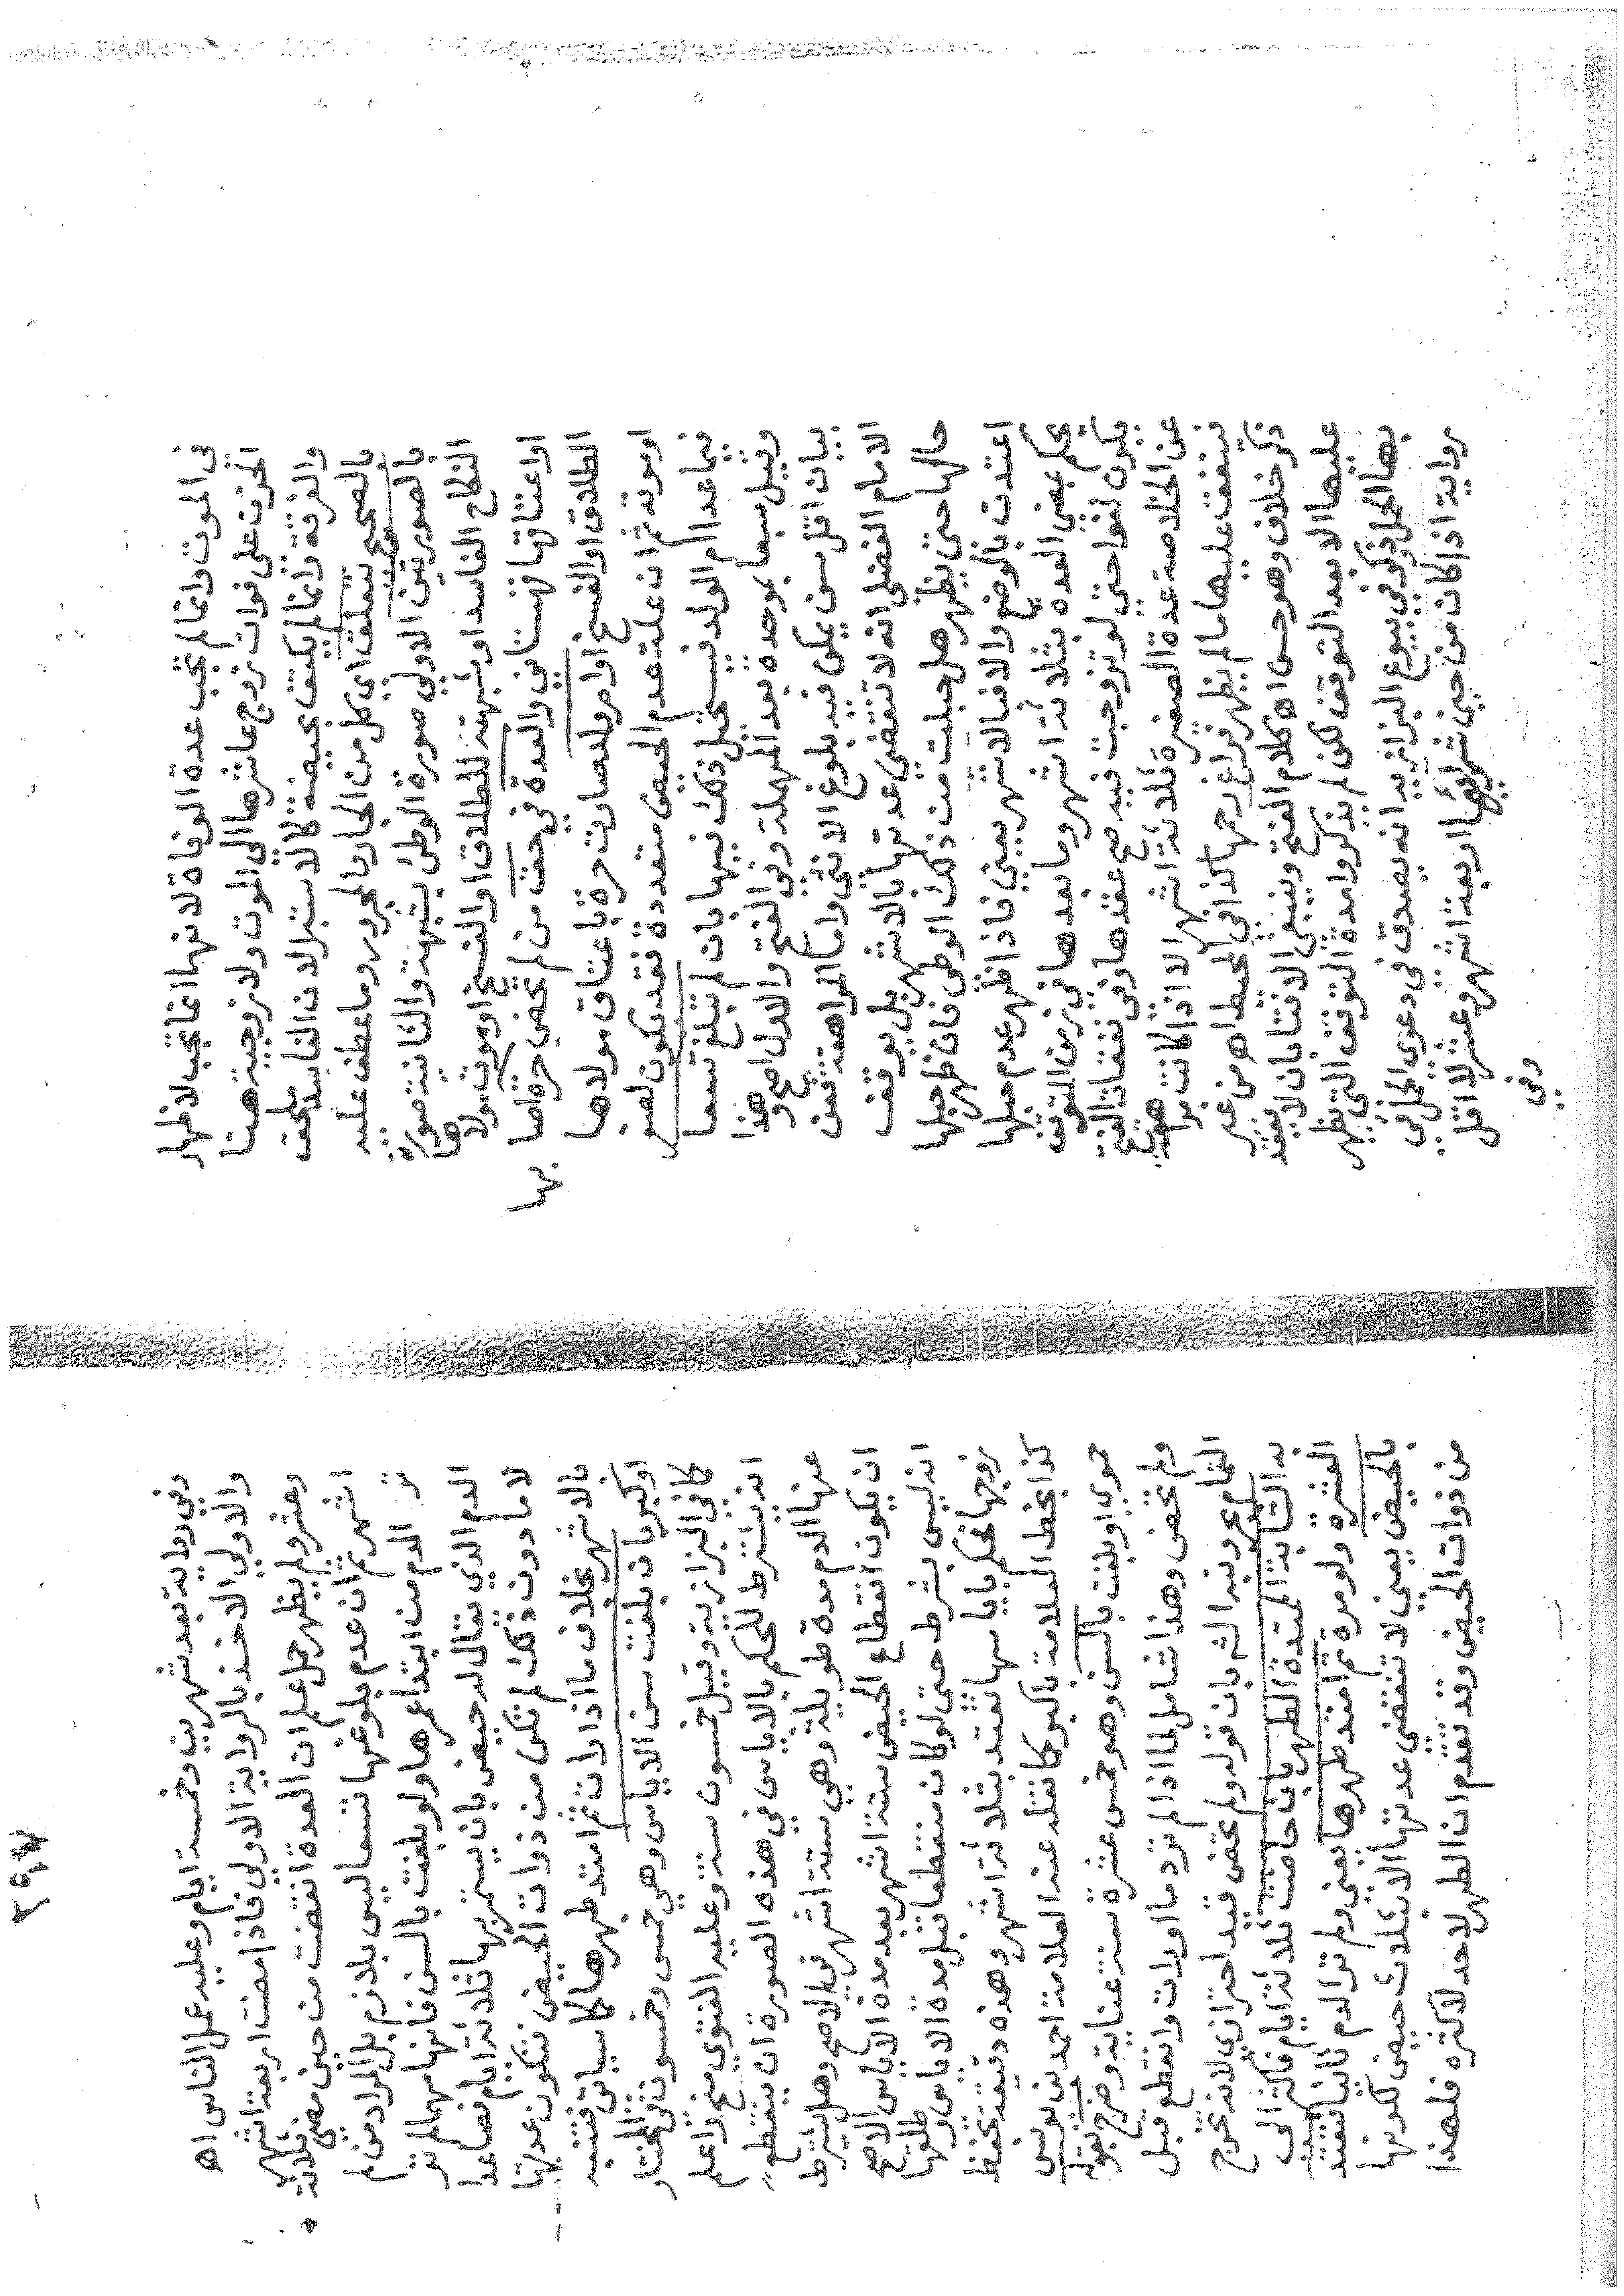 في الموت وانما لم تجب عدة الوفاة لانها انما تجب لاظهار
الحزن على فوات زوج عاشرها الى الموت ولا زوجية هنا
والفرقة وانما لم يكتف بحيضة كالاستبراء لان الفاسد ملحق
بالصحيح تتعلق اي كل من الجار والمجرور وما عطف عليه
بالصورتين الاولى صورة الوطئ بشبهة والثانية صورة
النكاح الفاسد او شبهته للطلاق او الفسخ او موت مولاها
او اعتاقها قهستاني والعدة في حق من لم تحض حرة
الطلاق او الفسخ او ام ولد صارت حرة باعتاق مولاها
او موته ثم ان علة عدم الحيض متعددة فقد يكون لصغر
بان لم تبلغ تسعا فيما عدا ام الولد فيستحيل ذلك فيها
وقيل سبعا بموحدة بعد المهملة وفي الفتح والاول اصح وهذا
بيان اقل سن يمكن فيه بلوغ الانثى واما المراهقة فعن
الامام الفضلي انه لا تنقضي عدتها بالاشهر بل يوقف
حالها حتى يظهر هل حبلت من ذلك الوطئ فان ظهر حبلها
اعتدت بالوضع والا فبالاشهر يعني فاذا ظهر عدم حبلها
يحكم بمضي العدة بثلاثة اشهر وما بعدها في زمن التوقف
يكون لغوا حتى لو تزوجت فيه صح عقدها وفي نفقات الفتح
عن الخلاصة عدة الصغيرة ثلاثة اشهر الا اذا كانت مراهقة
فينفق عليها ما لم يظهر فراغ رحمها كذا في المحيط اه من غير
ذكر خلاف وهو حسن اه كلام الفتح وينبغي الافتاء بان لا يعقد
عليها الا بعد التوقف لكن لم يذكروا مدة التوقف التي يظهر
بها الحمل وذكر في بيوع البزازية انه يصدق في دعوى الحبل في
رواية اذا كان من حين شرائها اربعة اشهر وعشر لا اقل
وفي
٢٩٧
وفي رواية بعد شهرين وخمسة ايام وعليه عمل الناس اه
والاولى الاخذ بالرواية الاولى فاذا مضت اربعة اشهر
وعشر ولم يظهر حمل علم ان العدة انقضت من حين مضي ثلاثة
اشهر ثم ان عدم بلوغها تسعا ليس بلازم بل المراد من لم
تر الدم من ابتداء عمرها ولو بلغت بالسن فانها مهما لم تر
الدم الذي يقال له حيض بان يستمر بها ثلاثة ايام فصاعدا
لا ما دون ذلك لم تكن من ذوات الحيض فتكون عدتها
بالاشهر بخلاف ما اذا رات ثم امتد طهرها كما سياتي فتنبه
او كبر بان بلغت سن الاياس وهي خمس وخمسون في المختار
كما في البزازية وقيل خمسون سنة وعليه الفتوى منح واعلم
انه يشترط للحكم بالاياس في هذه الصورة ان ينقطع
عنها الدم مدة طويلة وهي ستة اشهر في الاصح وهل يشترط
ان يكون انقطاع الحيض ستة اشهر بعد مدة الاياس الاصح
انه ليس بشرط حتى لو كان منقطعا قبل مدة الاياس وطلقها
زوجها يحكم باياسها تعتد بثلاثة اشهر وهذه دقيقة تحفظ
كذا بخط العلامة باكير كما نقله عند العلامة احمد بن يونس
حموي او بلغت بالسن وهو خمس عشرة سنة عناية وخرج بقوله
ولم تحض وهذا شامل لما اذا لم تر دما او رات وانقطع قبل
التمام بحر ونبه الش بان قوله ولم تحض قيد احترازي لانه تخرج
به الشابة الممتدة الطهر بان حاضت ثلاثة ايام فاكثر الى
العشرة ولو مرة ثم امتد طهرها يعني ولم تر الدم ثانيا فتعتد
بالحيض يعني لا تنقضي عدتها الا بثلاث حيض لكونها
من ذوات الحيض وقد تقدم ان الطهر لا حد لاكثره فلهذا